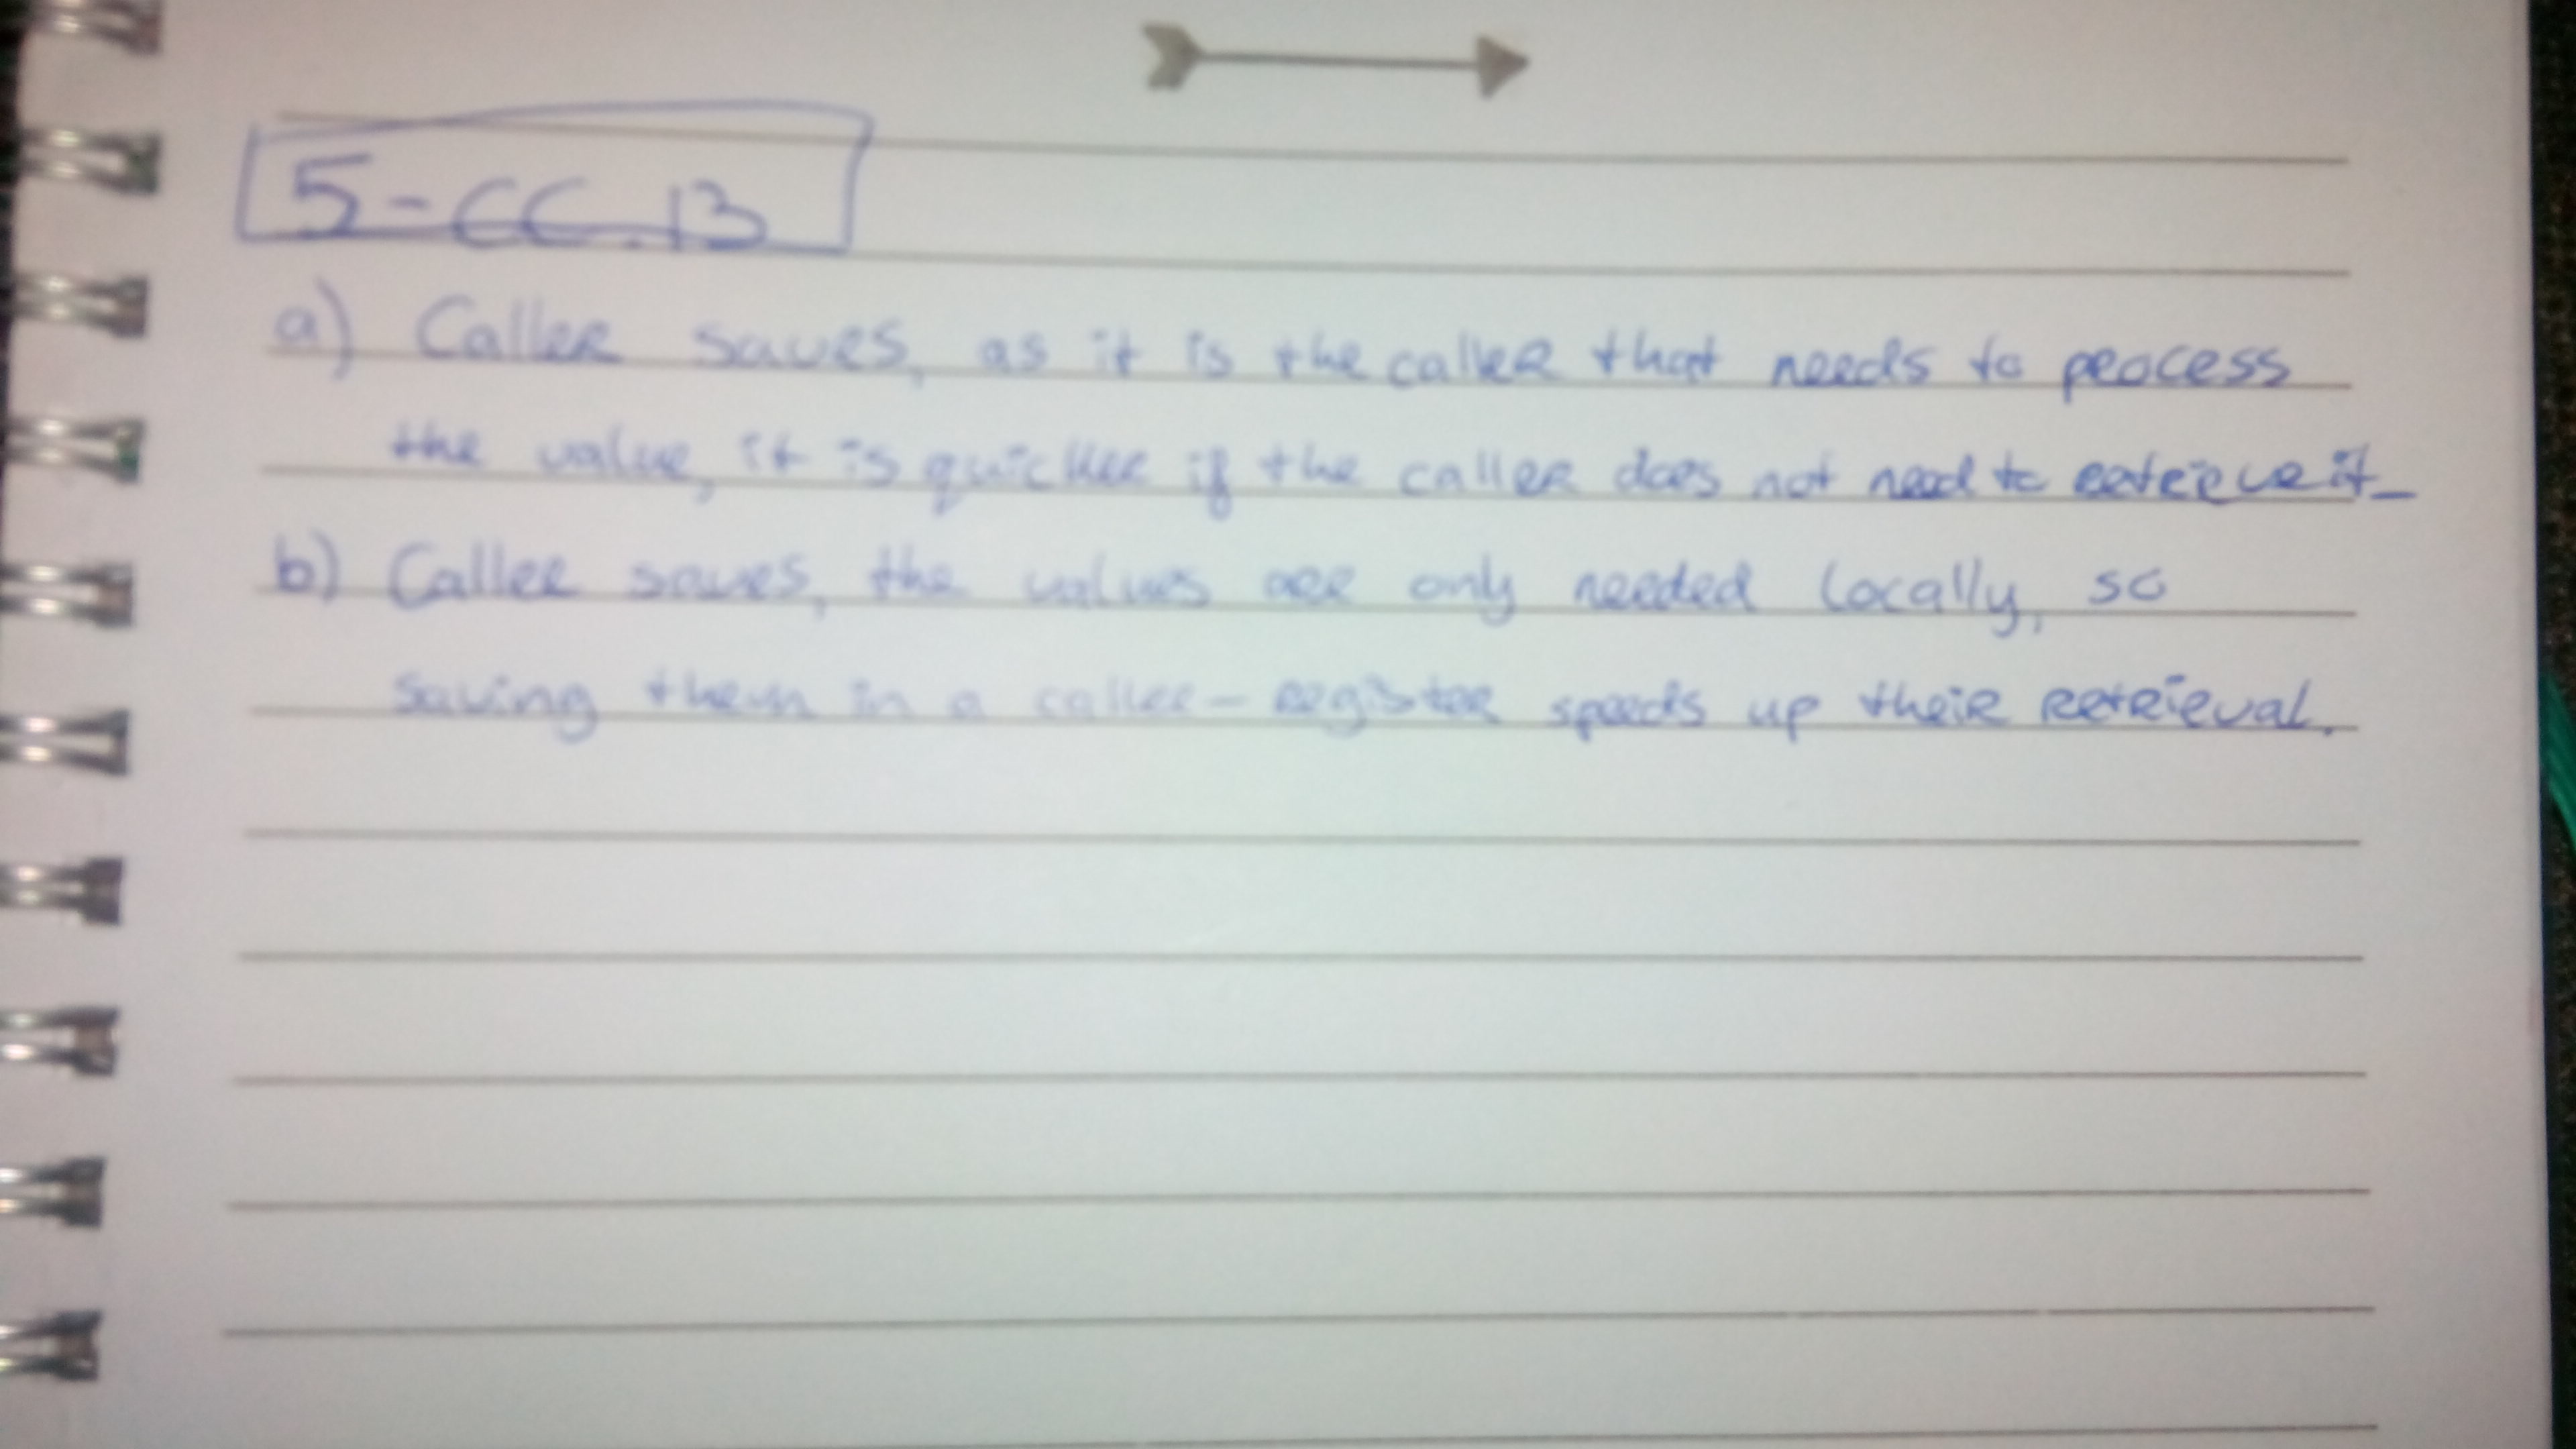 5-CC.13
a) Caller saves, as it is the caller that needs to process
the value, it is quicker if the caller does not need to retrieve it.
b) Callee saves, the values are only needed locally, so
saving them in a callee-register speeds up their retrieval.